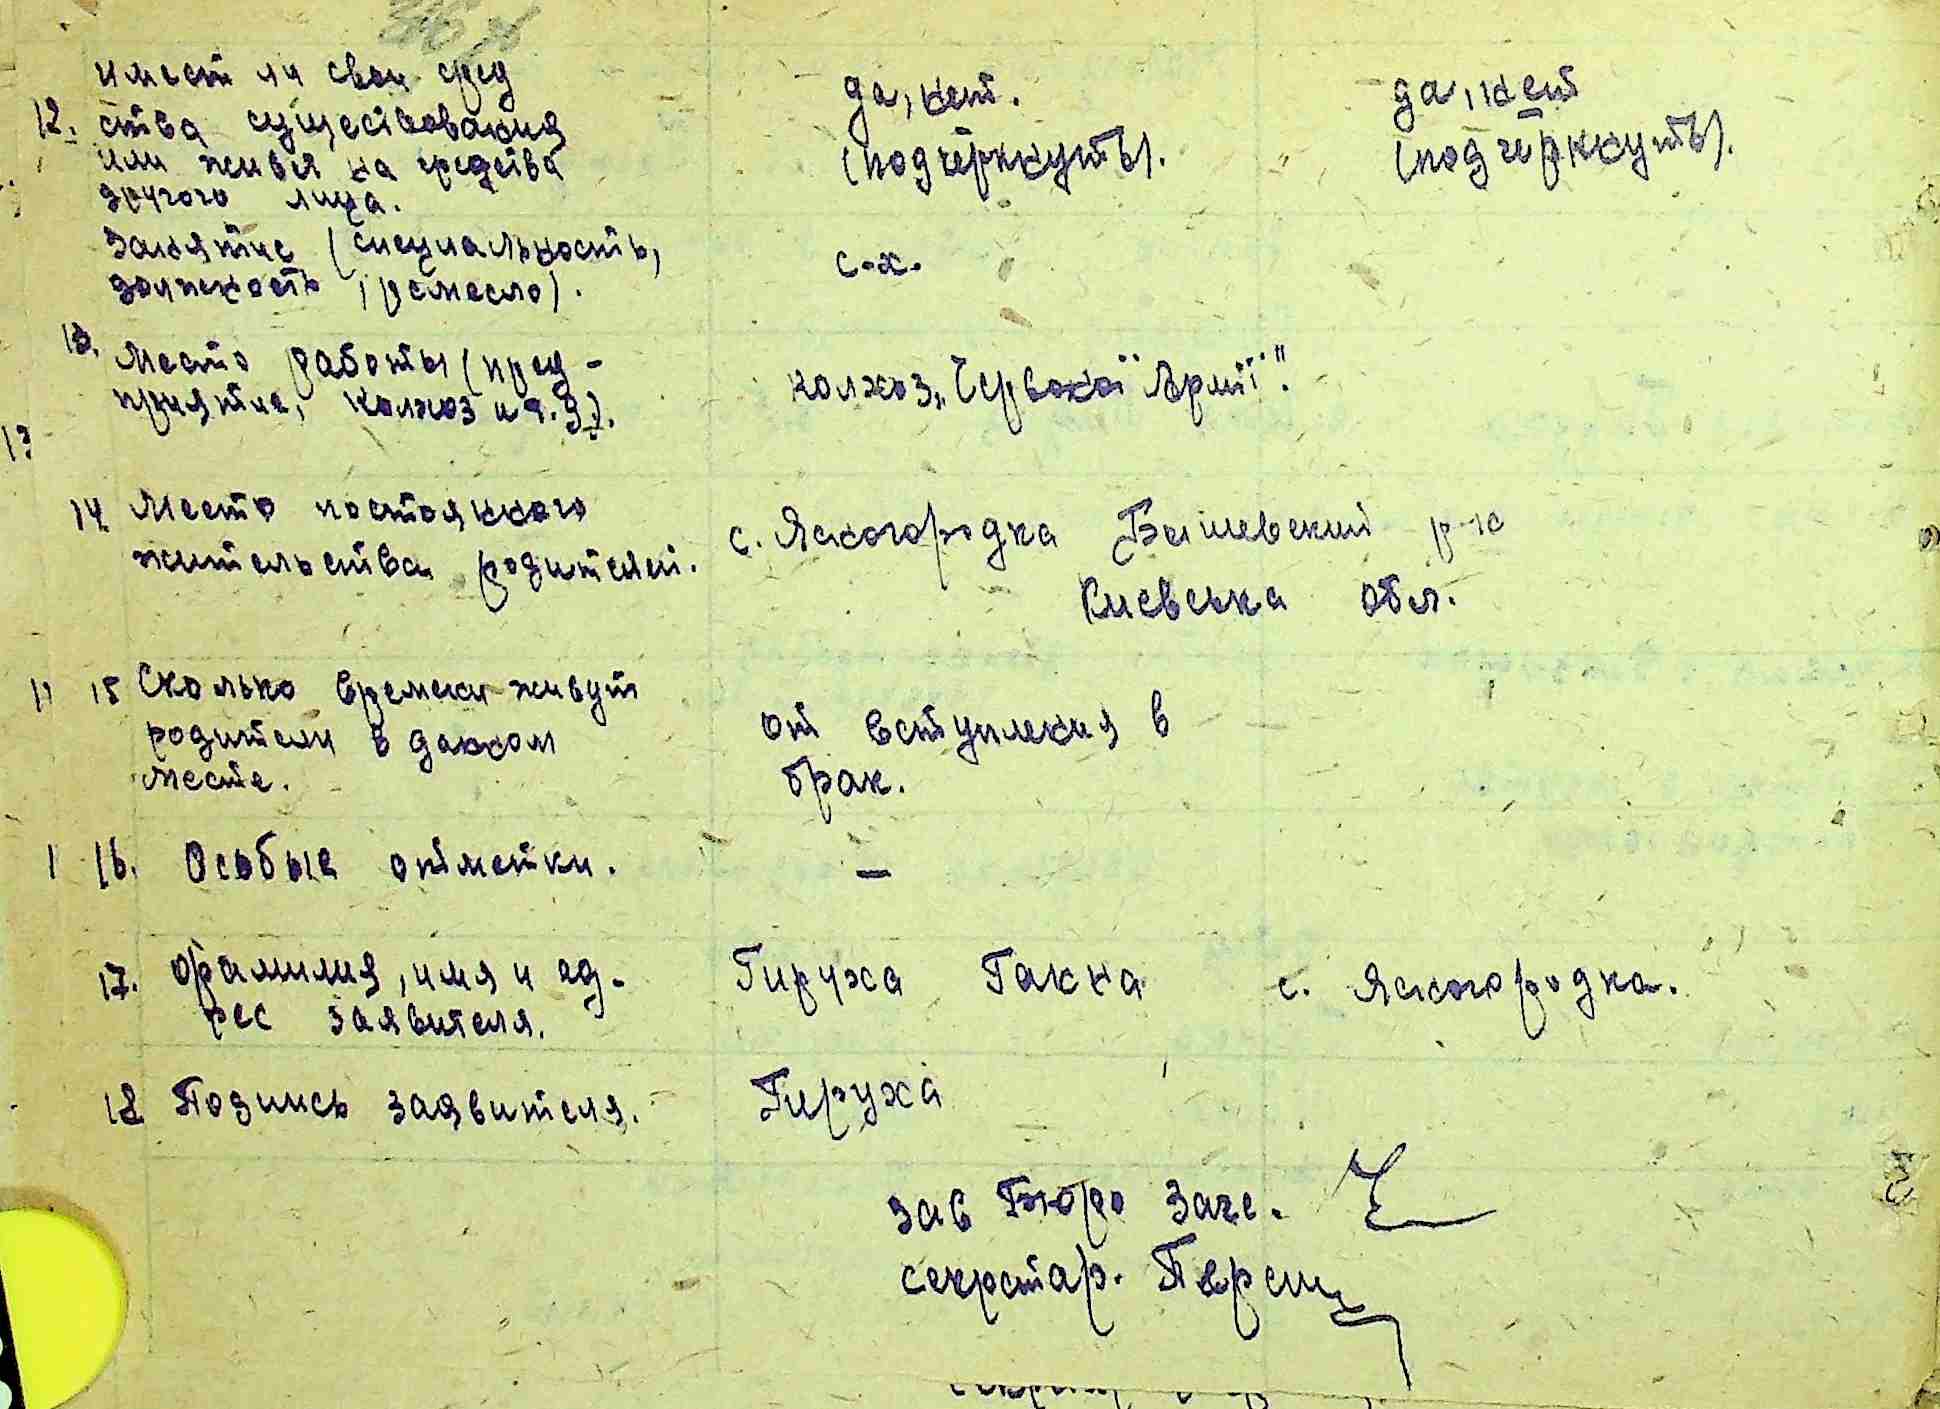 имеет ли свои сред
12. ства существования
или живея на средства
другого лица.
да, нет.
(подчёркнуть).
да, нет
(подчёркнуть).
Занятие (специальность,
должность, ремесло).
с.х.
13. Место работы (пред-
приятие, колхоз и т.д.).
колхоз „Червоної Армії".
13
14. Место постоянного
жительства родителей.
с. Ясногородка Бышевский р-н
Киевська обл.
15 Сколько времени живут
родители в данном
месте.
от вступления в
брак.
16. Особые отметки. —
17. Фамилия, имя и ад-
рес заявителя.
Гируха Ганна с. Ясногородка.
18 Подпись заявителя. Гируха
зав Бюро Загс.
секретар.